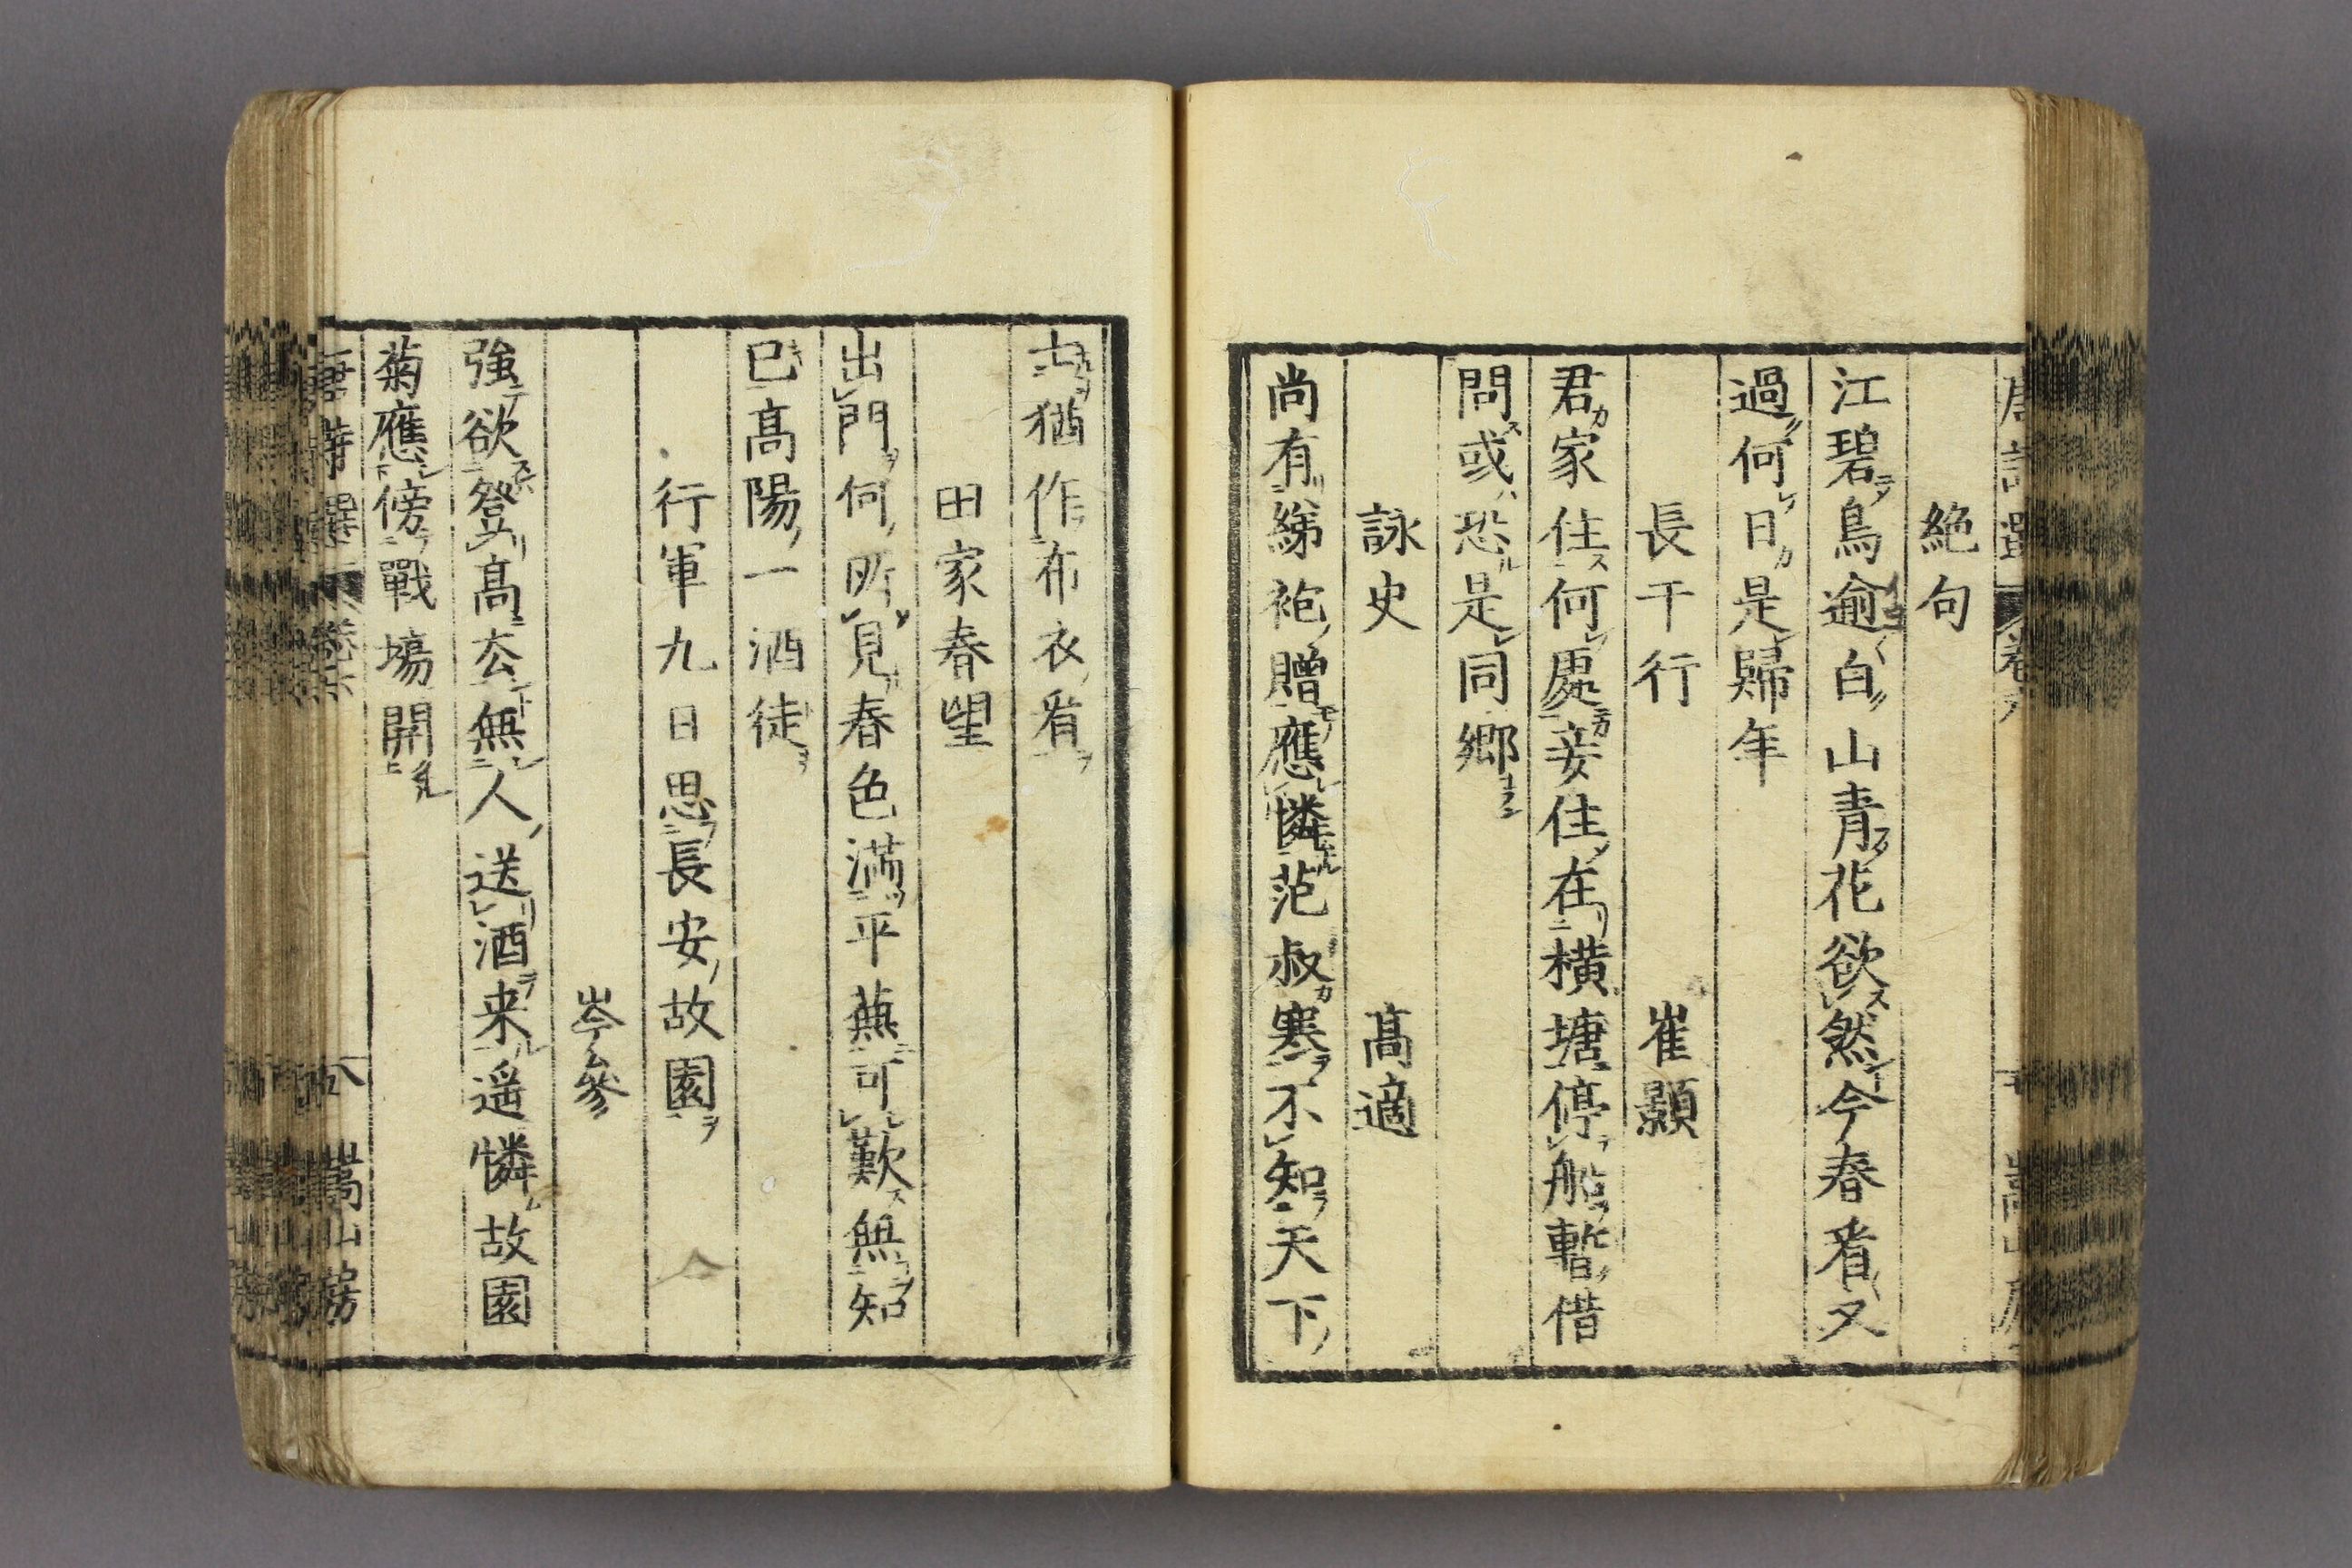 絶句
江碧鳥逾白山青花欲然今春看又
過何日是歸年
長干行 崔顥
君家住何處妾住在橫塘停船暫借
問或恐是同郷
詠史 高適
尚有綈袍贈應憐范叔寒不知天下
士猶作布衣看
田家春望
出門何所見春色満平蕪可歎無知
已高陽一酒徒
行軍九日思長安故園
岑參
強欲登高去無人送酒来遥憐故園
菊應傍戰場開
唐詩選 卷六 八 嵩山房